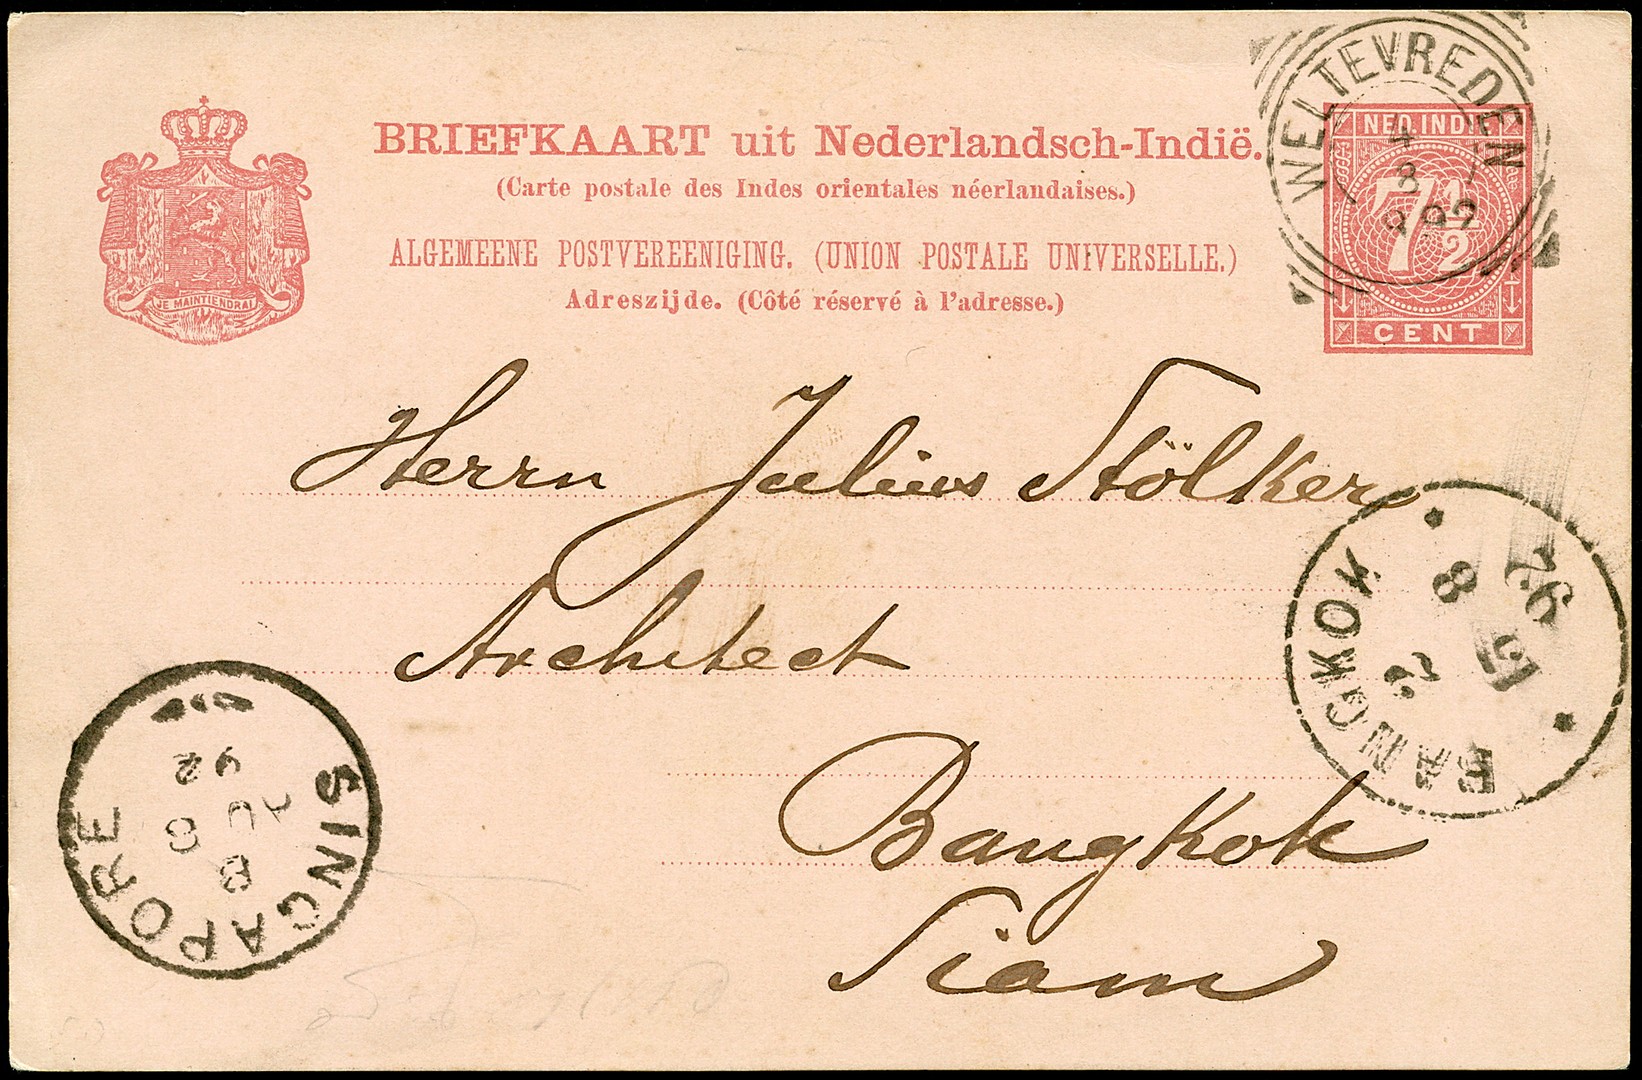 BRIEFKAART uit Nederlandsch-Indië.
(Carte postale des Indes orientales néerlandaises.)
ALGEMEENE POSTVEREENIGING. (UNION POSTALE UNIVERSELLE.)
Adreszijde. (Côté réservé à l'adresse.)
JE MAINTIENDRAI
NED. INDIE
7 1/2
CENT
WELTEVREDEN
4
8
92
Herrn Julius Stölker
Architect
Bangkok
Siam
BANGKOK
2
8
15
92
SINGAPORE
8
92